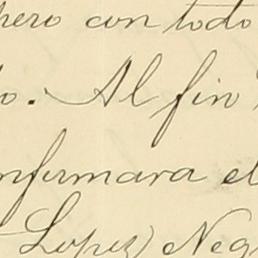 pero con todo
o. Al fin
nfermara el
Lopez) Neg